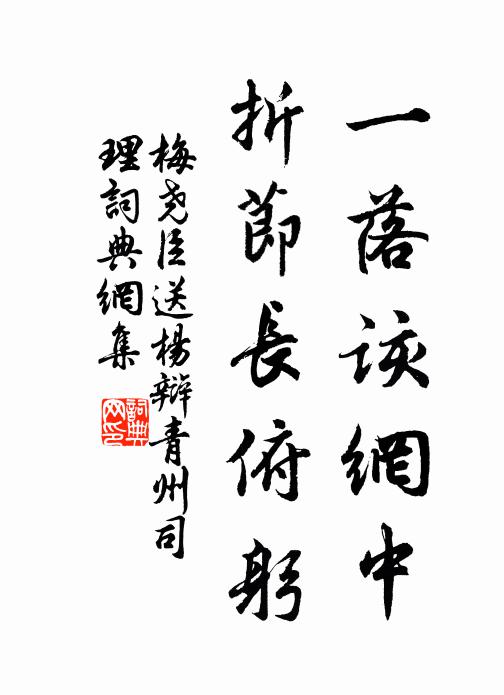 一落该網中
折節長俯躬
梅尧臣送楊辩青州司
理詞典網集
詞典
网印